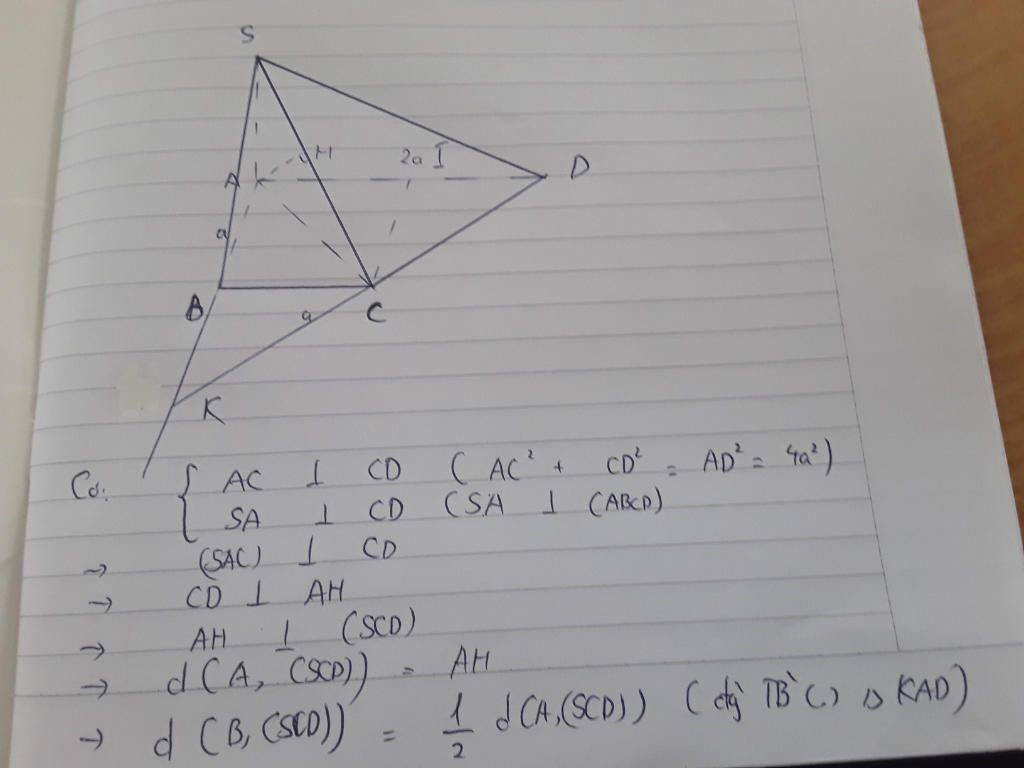 S
H
2a I
D
A
a
B
a
C
K
Có: { AC ⊥ CD ( AC² + CD² = AD² = 4a²)
SA ⊥ CD (SA ⊥ (ABCD)
→ (SAC) ⊥ CD
→ CD ⊥ AH
→ AH ⊥ (SCD)
→ d(A, (SCD)) = AH
→ d (B, (SCD)) = 1/2 d(A,(SCD)) ( đg` TB` (.) Δ KAD)